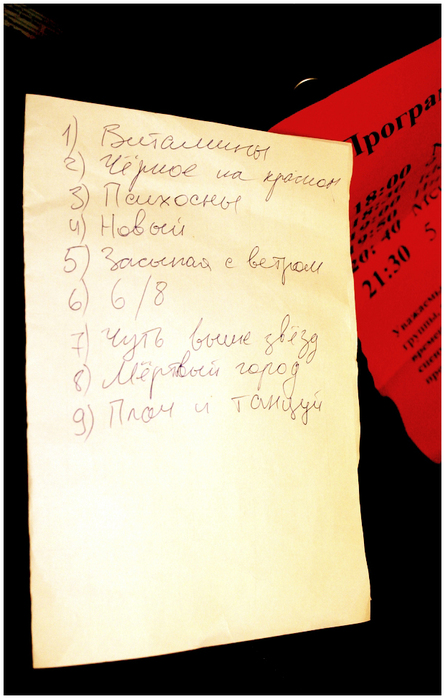 1) Витамины
2) Чёрное на красном
3) Психосны
4) Новый
5) Засыпая с ветром
6) 6/8
7) Чуть выше звёзд
8) Мёртвый город
9) Плач и танцуй
Програ
18:00
20:40
21:30 5
Уважаем
группы,
време
сцен
про